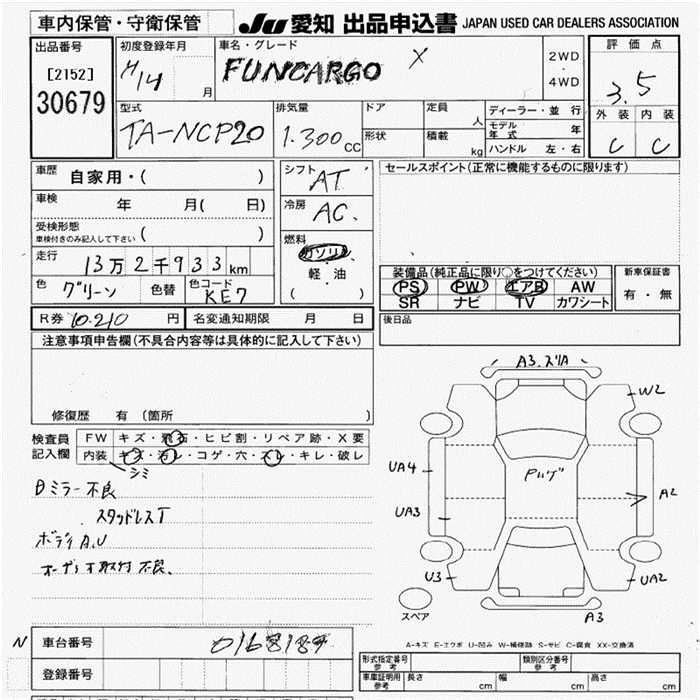 車内保管・守衛保管
JU 愛知 出品申込書 JAPAN USED CAR DEALERS ASSOCIATION
出品番号
[2152]
30679
初度登録年月
H14
月
車名・グレード
FUNCARGO X
2WD
・
4WD
評価点
3.5
外装 内装
C C
型式
TA-NCP20
排気量
1.300 CC
ドア
形状
定員
人
積載
kg
ディーラー・並行
モデル年式 年
ハンドル 左・右
車歴 自家用・( )
車検 年 月( 日)
受検形態
車検付きのみ記入して下さい ( )
走行 13万2千933km
色 グリーン 色替 色コード KE7
シフト AT
冷房 AC
燃料
ガソリン
・
軽・油
( )
セールスポイント(正常に機能するものに限ります)
装備品(純正品に限り○をつけてください)
PS PW エアB AW
SR ナビ TV カワシート
新車保証書
有・無
R券 10.210 円 名変通知期限 月 日
後日品
注意事項申告欄(不具合内容等は具体的に記入して下さい)
修復歴 有 (箇所 )
検査員
記入欄
FW キズ・飛石・ヒビ割・リペア跡・X要
内装 キズ・汚レ・コゲ・穴・スレ・キレ・破レ
シミ
Bミラー不良
スタッドレスT
ボディA.U
オーディオ取付不良、
A3.スリA
W2
UA4
UA3
U3
A2
UA2
A3
スペア
A-キズ E-エクボ U-凹み W-補修跡 S-サビ C-腐食 XX-交換済
N 車台番号
登録番号
形式指定番号
参考
類別区分番号
参考
車庫証明用
参考
長さ cm 幅 cm 高さ cm